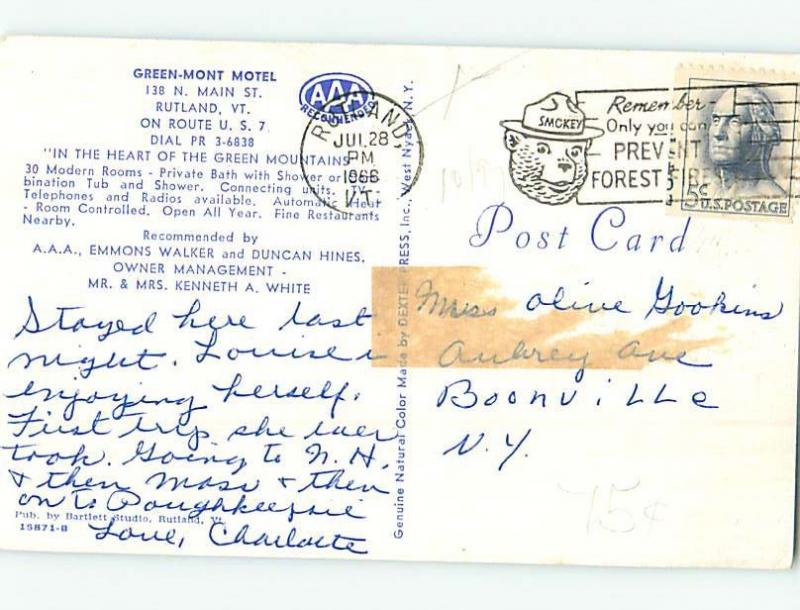 GREEN-MONT MOTEL
138 N. MAIN ST.
RUTLAND, VT.
ON ROUTE U. S. 7
DIAL PR 3-6838
"IN THE HEART OF THE GREEN MOUNTAINS"
30 Modern Rooms - Private Bath with Shower or
bination Tub and Shower. Connecting units. TV -
Telephones and Radios available. Automatic Heat
- Room Controlled. Open All Year. Fine Restaurants
Nearby.
Recommended by
A.A.A., EMMONS WALKER and DUNCAN HINES.
OWNER MANAGEMENT -
MR. & MRS. KENNETH A. WHITE
AAA
RECOMMENDED
RUTLAND,
JUL 28
PM
1966
VT.
SMOKEY
Remember
Only you can
PREVENT
FOREST FIRES
5¢
U.S. POSTAGE
10/97
Post Card
Stayed here last
night. Louise is
enjoying herself.
First trip she ever
took. Going to N. H.
& then Mass & then
on to Poughkeepsie
Love, Charlotte
Pub. by Bartlett Studio, Rutland, Vt.
15871-B
Genuine Natural Color Made by DEXTER PRESS, Inc., West Nyack, N. Y.
Miss Olive Gookins
Aubrey Ave
Boonville
N.Y.
75¢